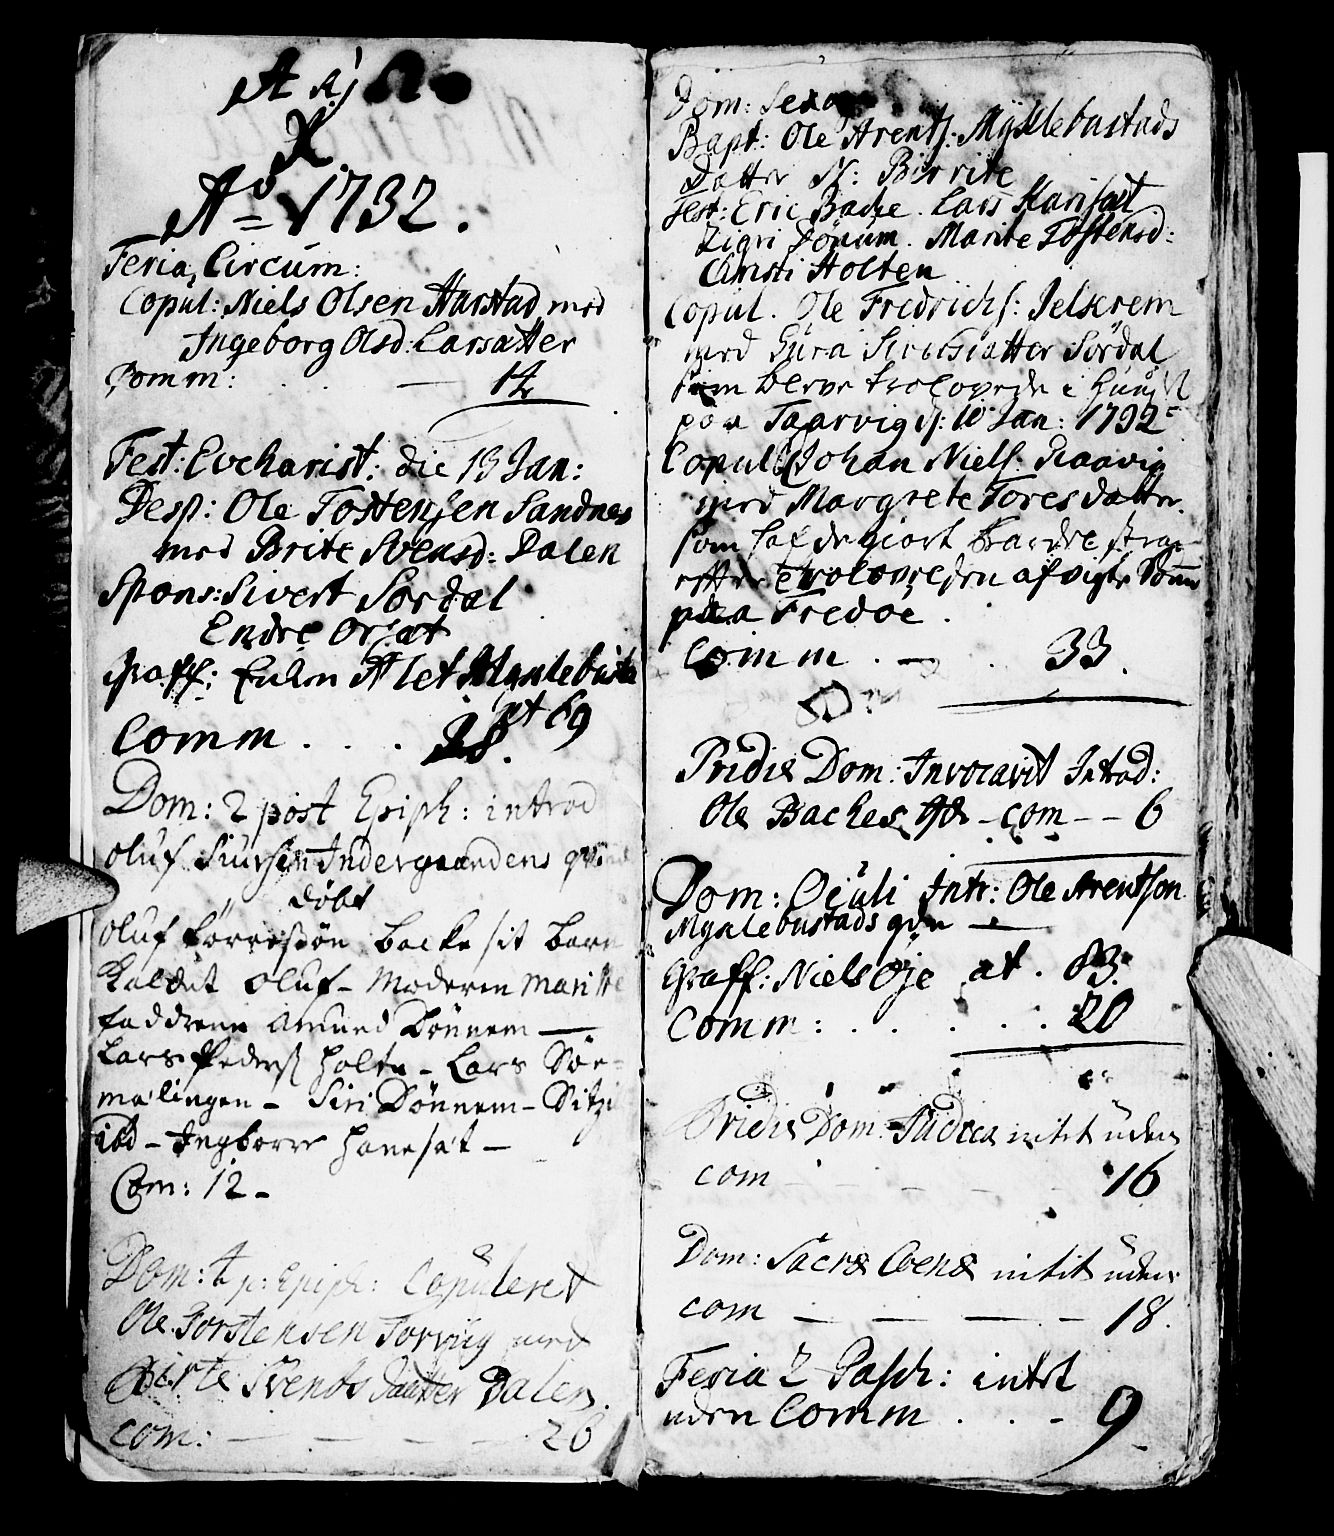 A & Ω
X
Aō 1732.
Feria Circum:
Copul: Niels Olsen Harstad med
Ingeborg Olsd: Larsatter
Comm: . . — 14
Fest: Eveharist: die 13 Jan:
Desp: Ole Tostensen Sandnes
med Brite Svensd: Dalen
Spons: Sivert Sørdal
Endre Orsæt
Graff: Enken Alet Myklebust
æt 69
Comm . . . 28.
Dom: 2 post Epiph: introd
Oluf Siursen Indergaardens qvinde
døbt
Oluf Torresøn Backe sit barn
Kaldet Oluf - Moderen Maritte
faddrene Amund Dønnem —
Lars Peders Holte - Lars Sør-
mælingen - Siri Dønnem - Sitzi
ibd - Ingborre Haneset -
Com: 12 -
Dom: 4 p: Epiph: Copuleret
Ole Torstensen Torvig med
Birte Svends daatter Dalen.
com: — — — — 26
Dom: Sexag
Bapt: Ole Arents: Myklebustads
Datter N: Birrite
Test: Eric Backe. Lars Hanisæt
Zigri Dönum. Marite Tostensd:
Christi Holten
Copul. Ole Fredrichs: Jelserem
med Gura Siversdatter Sørdal
som bleve trolovede i
paa Taarvig d: 10 Jan: 1732
Copul: Johan Niels: Raavig
med Margrete Toresdatter.
som hafde giort
efter trolovelsen af
paa Fredøe.
Comm . — . 33.
Pridie Dom: Invocavit Introd:
Ole Backes qv - com - - 6
Dom: Oculi Intr: Ole Arentson
Myklebustads qvin —
Graff: Niels Øje æt. 83.
Comm: . . . . . 20
Pridie Dom: Judica intet uden
com — — — — 16
Dom: Sacræ Coenæ intet uden
com — — — — 18.
Feria 2 Pasch: intet
uden Comm . . - 9